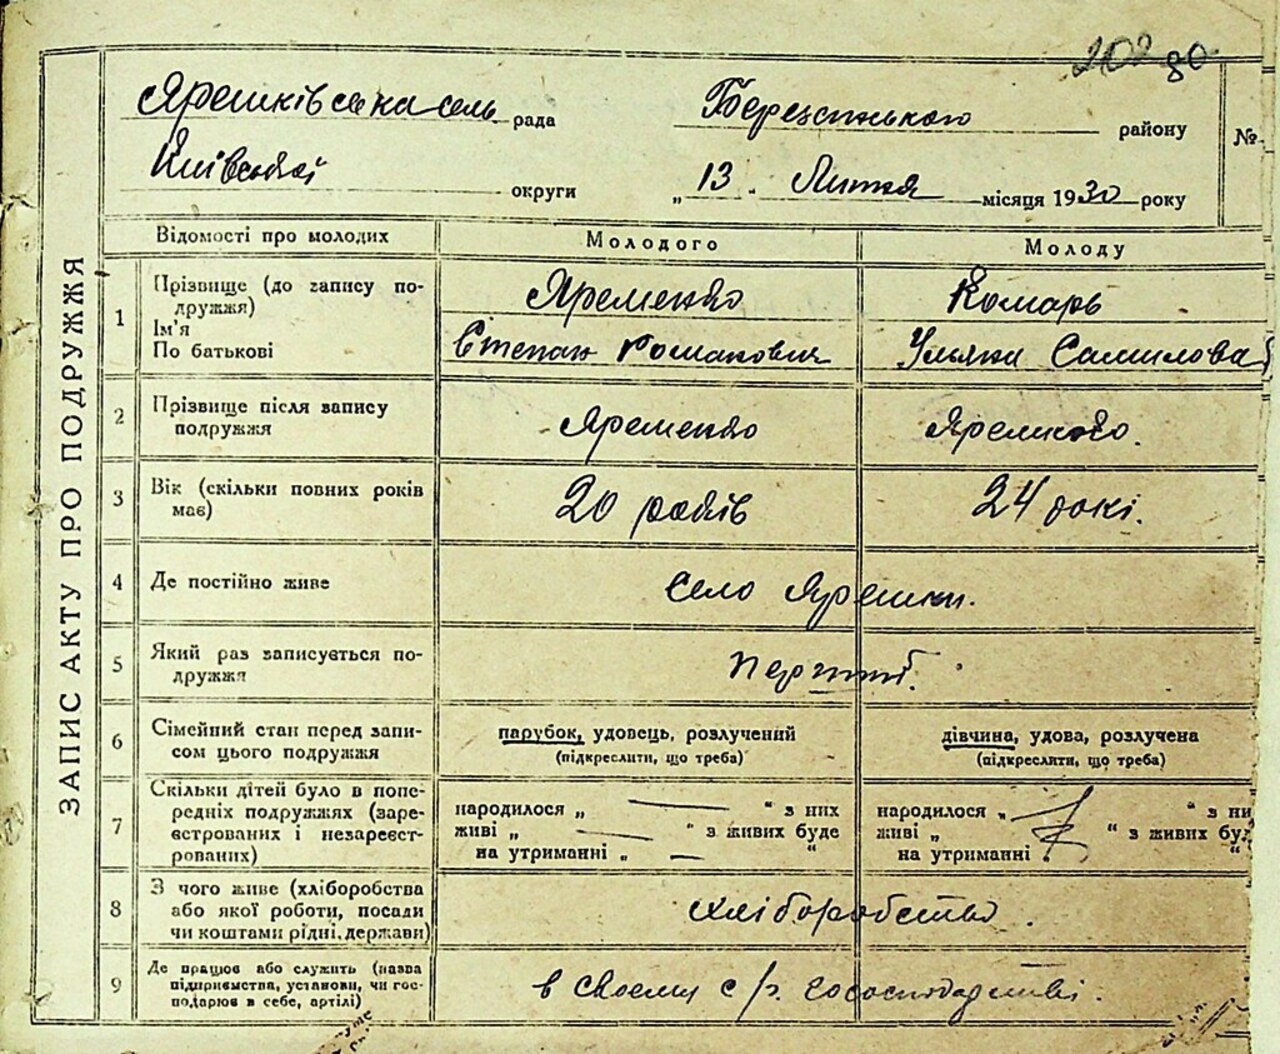 202 80
Ярешківська сель рада Березянського району №
Київської округи „ 13 „ Лютня місяця 1930 року
ЗАПИС АКТУ ПРО ПОДРУЖЖЯ
Відомості про молодих Молодого Молоду
1 Прізвище (до запису по-
дружжя)
Ім'я
По батькові
Яременко
Степан Романович
Комарь
Ульяна Самилова
2 Прізвище після запису
подружжя
Яременко
Яременко.
3 Вік (скільки повних років
має)
20 років
24 рокі.
4 Де постійно живе
Село Ярешки.
5 Який раз записується по-
дружжя
Перший.
6 Сімейний стан перед запи-
сом цього подружжя
парубок, удовець, розлучений
(підкреслити, що треба)
дівчина, удова, розлучена
(підкреслити, що треба)
7 Скільки дітей було в попе-
редніх подружжях (заре-
єстрованих і незареєст-
рованих)
народилося „ — “ з них
живі „ — “ з живих буде
на утриманні „ — “
народилося „ “ з ни
живі „ “ з живих буд
на утриманні “
8 З чого живе (хліборобства
або якої роботи, посади
чи коштами рідні, держави)
хліборобство.
9 Де працює або служить (назва
підприємства, установи, чи гос-
подарює в себе, артілі)
в своєми с/г. гососподарстві.